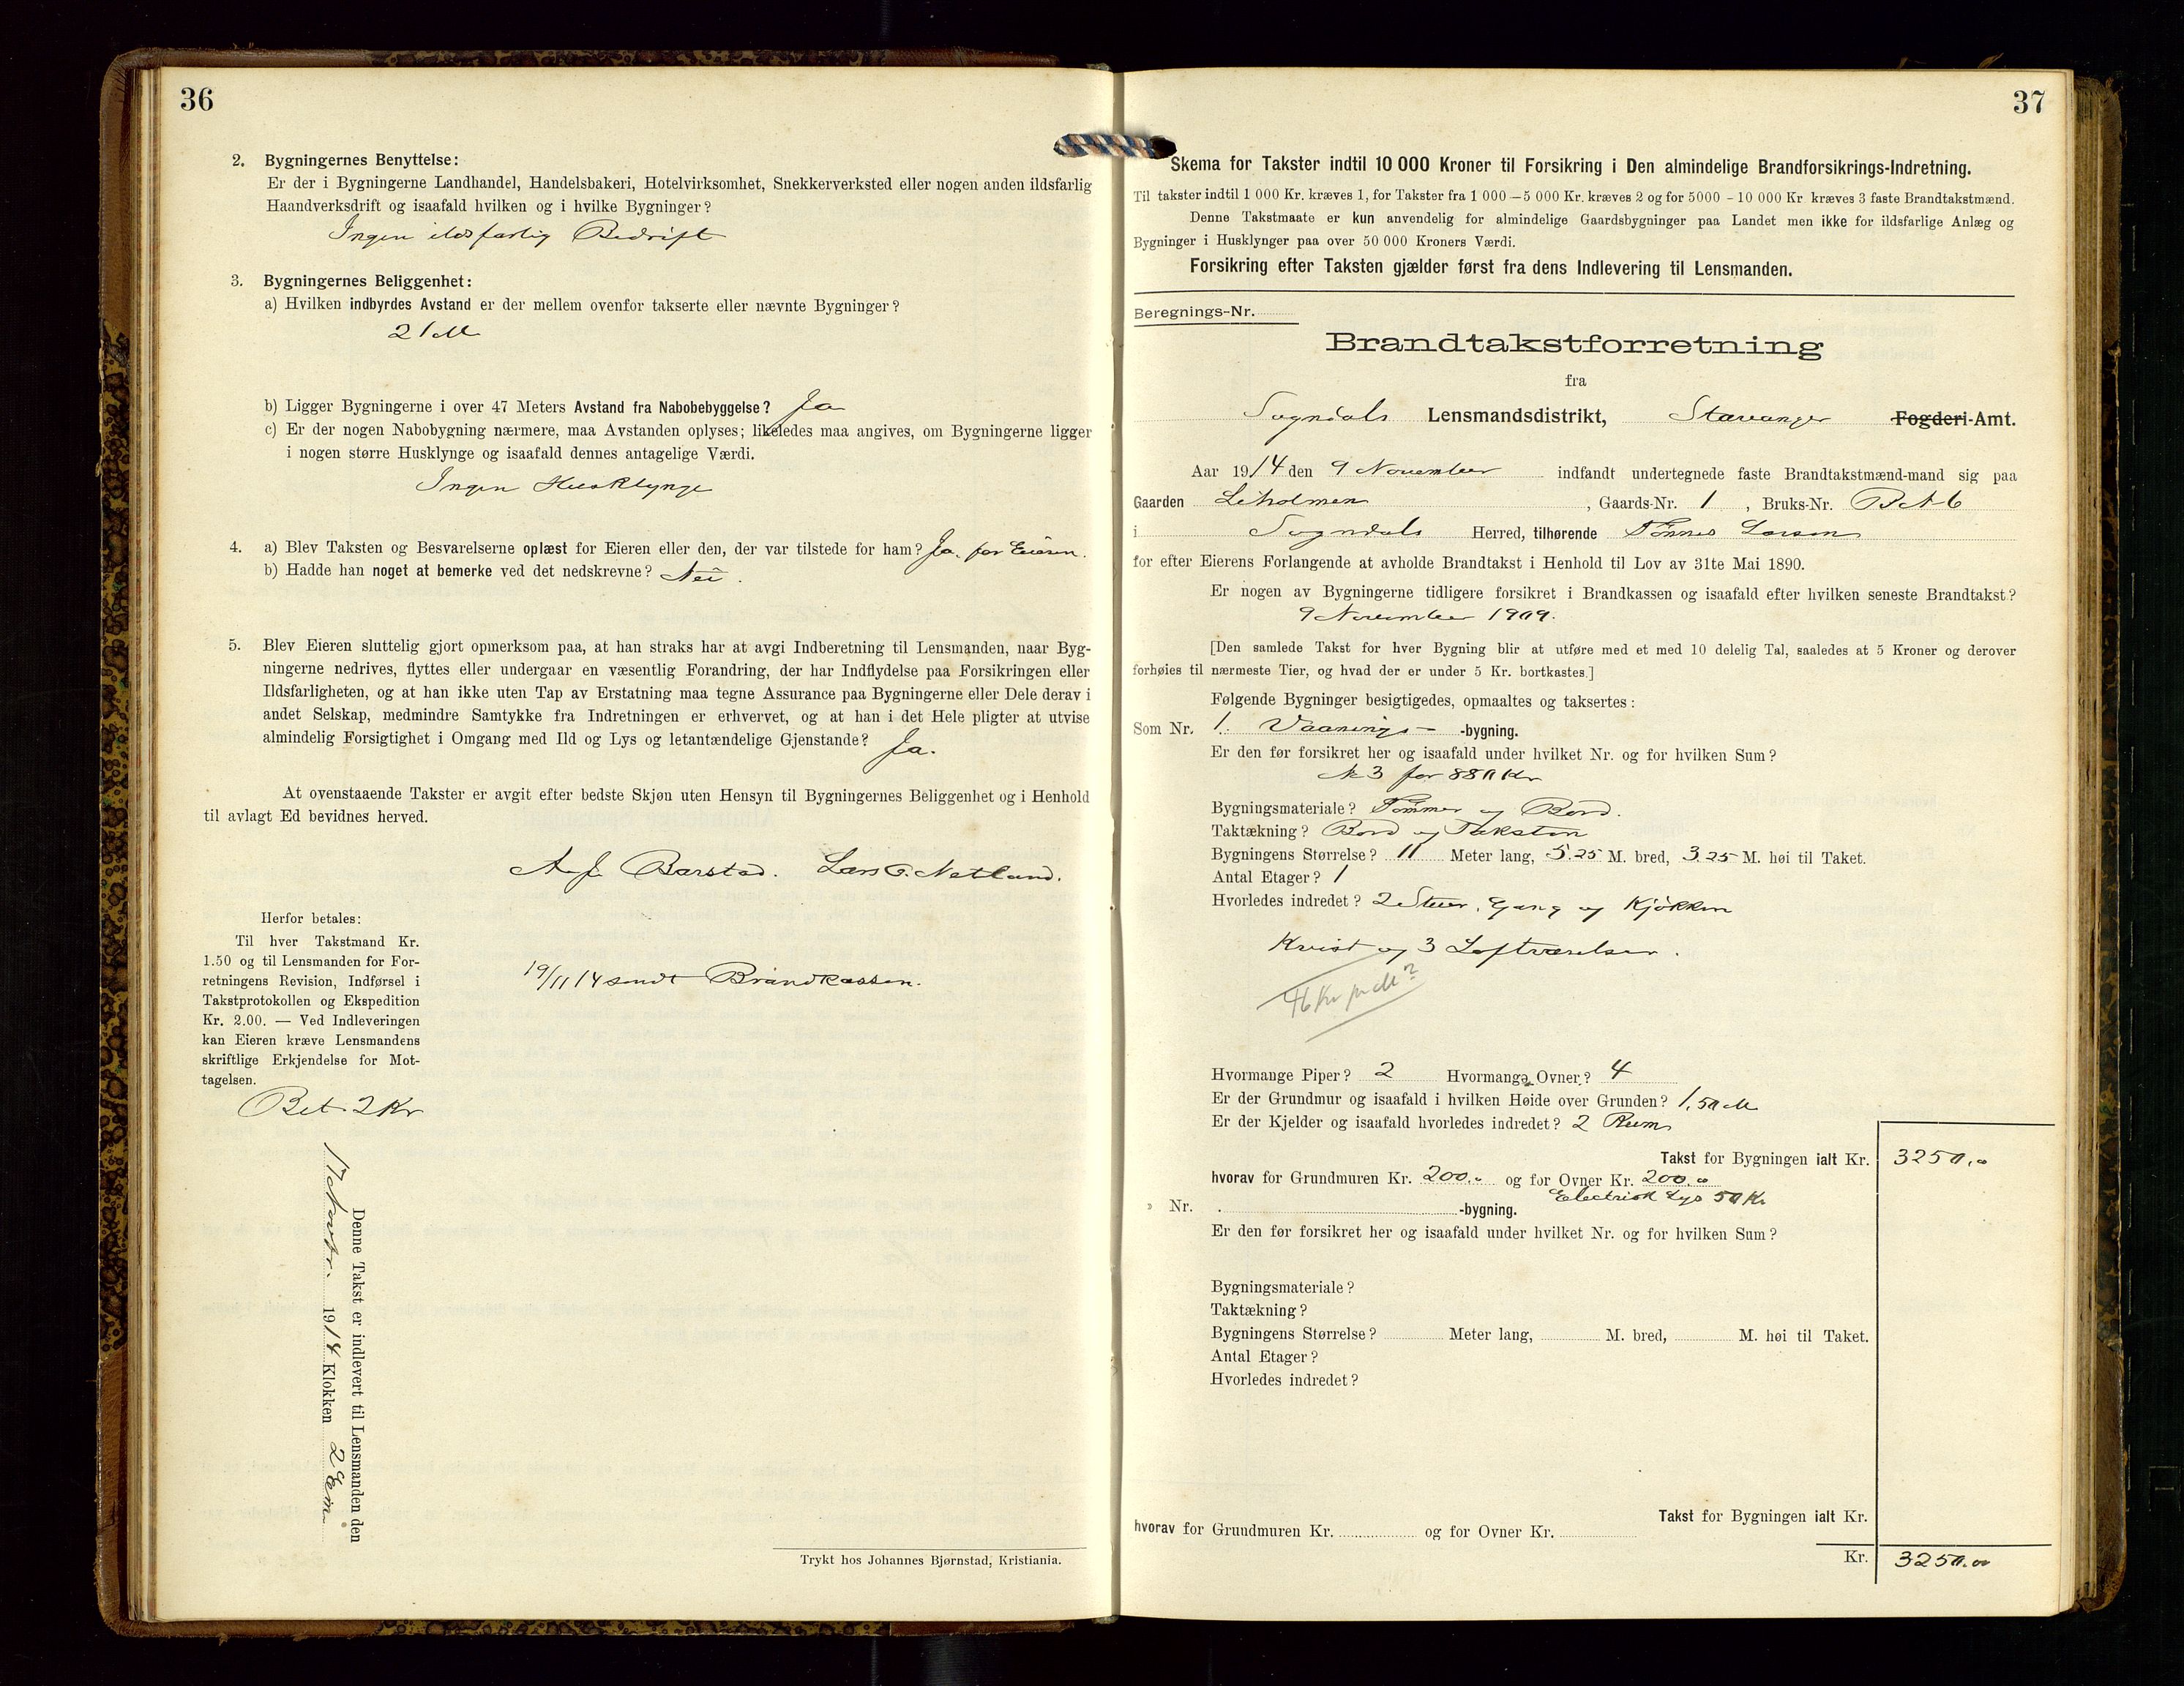 36
2. Bygningernes Benyttelse:
Er der i Bygningerne Landhandel, Handelsbakeri, Hotelvirksomhet, Snekkerverksted eller nogen anden ildsfarlig
Haandverksdrift og isaafald hvilken og i hvilke Bygninger?
Ingen ildsfarlig Bedrift
3. Bygningernes Beliggenhet:
a) Hvilken indbyrdes Avstand er der mellem ovenfor takserte eller nævnte Bygninger?
21 M
b) Ligger Bygningerne i over 47 Meters Avstand fra Nabobebyggelse? Ja
c) Er der nogen Nabobygning nærmere, maa Avstanden oplyses; likeledes maa angives, om Bygningerne ligger
i nogen større Husklynge og isaafald dennes antagelige Værdi.
Ingen Husklynge
4. a) Blev Taksten og Besvarelserne oplæst for Eieren eller den, der var tilstede for ham? Ja, for Eieren.
b) Hadde han noget at bemerke ved det nedskrevne? Nei.
5. Blev Eieren sluttelig gjort opmerksom paa, at han straks har at avgi Indberetning til Lensmanden, naar Byg-
ningerne nedrives, flyttes eller undergaar en væsentlig Forandring, der har Indflydelse paa Forsikringen eller
Ildsfarligheten, og at han ikke uten Tap av Erstatning maa tegne Assurance paa Bygningerne eller Dele derav i
andet Selskap, medmindre Samtykke fra Indretningen er erhvervet, og at han i det Hele pligter at utvise
almindelig Forsigtighet i Omgang med Ild og Lys og letantændelige Gjenstande? Ja.
At ovenstaaende Takster er avgit efter bedste Skjøn uten Hensyn til Bygningernes Beliggenhet og i Henhold
til avlagt Ed bevidnes herved.
Barstad. Lars O. Netland.
Herfor betales:
Til hver Takstmand Kr.
1.50 og til Lensmanden for For-
retningens Revision, Indførsel i
Takstprotokollen og Ekspedition
Kr. 2.00. — Ved Indleveringen
kan Eieren kræve Lensmandens
skriftlige Erkjendelse for Mot-
tagelsen.
19/11 14 sendt Brandkassen.
Bet. 2 Kr
Denne Takst er indlevert til Lensmanden den
17 Novbr. 1914 Klokken 2 Em.
Trykt hos Johannes Bjørnstad, Kristiania.
37
Skema for Takster indtil 10 000 Kroner til Forsikring i Den almindelige Brandforsikrings-Indretning.
Til takster indtil 1 000 Kr. kræves 1, for Takster fra 1 000 — 5 000 Kr. kræves 2 og for 5000 - 10 000 Kr kræves 3 faste Brandtakstmænd.
Denne Takstmaate er kun anvendelig for almindelige Gaardsbygninger paa Landet men ikke for ildsfarlige Anlæg og
Bygninger i Husklynger paa over 50 000 Kroners Værdi.
Forsikring efter Taksten gjælder først fra dens Indlevering til Lensmanden.
Beregnings-Nr.
Brandtakstforretning
fra
Sogndals Lensmandsdistrikt, Stavanger Fogderi-Amt.
Aar 1914 den 9 November indfandt undertegnede faste Brandtakstmænd-mand sig paa
Gaarden Leholmen, Gaards-Nr. 1, Bruks-Nr.
i Sogndals Herred, tilhørende Tønnes Larsen
for efter Eierens Forlangende at avholde Brandtakst i Henhold til Lov av 31te Mai 1890.
Er nogen av Bygningerne tidligere forsikret i Brandkassen og isaafald efter hvilken seneste Brandtakst?
9 November 1909.
[Den samlede Takst for hver Bygning blir at utføre med et med 10 delelig Tal, saaledes at 5 Kroner og derover
forhøies til nærmeste Tier, og hvad der er under 5 Kr. bortkastes.]
Følgende Bygninger besigtigedes, opmaaltes og taksertes:
Som Nr. 1. Vaanings- -bygning.
Er den før forsikret her og isaafald under hvilket Nr. og for hvilken Sum?
No 3 for 880 Kr
Bygningsmateriale? Tømmer og Bord.
Taktækning? Bord og Taksten
Bygningens Størrelse? 11 Meter lang, 5.25 M. bred, 3.25 M. høi til Taket.
Antal Etager? 1
Hvorledes indredet? 2 Stuer, Gang og Kjøkken
Kvist og 3 Loftværelser.
46 Kr pr M²
Hvormange Piper? 2 Hvormange Ovner? 4
Er der Grundmur og isaafald i hvilken Høide over Grunden? 1.50 M
Er der Kjelder og isaafald hvorledes indredet? 2 Rum
Takst for Bygningen ialt Kr. 3250.00
hvorav for Grundmuren Kr. 200.00 og for Ovner Kr. 200.00
Electrisk Lys 50 Kr
» Nr. -bygning.
Er den før forsikret her og isaafald under hvilket Nr. og for hvilken Sum?
Bygningsmateriale?
Taktækning?
Bygningens Størrelse? Meter lang, M. bred, M. høi til Taket.
Antal Etager?
Hvorledes indredet?
Takst for Bygningen ialt Kr.
hvorav for Grundmuren Kr. og for Ovner Kr.
Kr. 3250.00